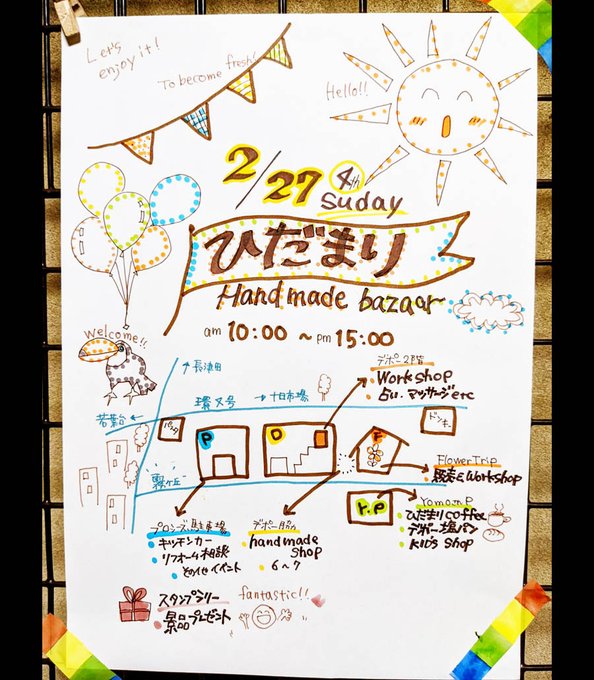 Let's
enjoy it!
To become fresh!
Hello!!
2/27 4th
Suday
ひだまり
Handmade bazaar
am 10:00 ~ pm 15:00
Welcome!!
↑長津田
環叉号 → 十日市場
若葉台 ←
霧ヶ丘
P
D
F
Y.P
ドンキ
デポー2階
・Workshop
・占い・マッサージetc
FlowerTrip
・販売&Workshop
Yomo.n.P
・ひだまりcoffee
・デポー塩パン
・KID'S Shop
プロンズ駐車場
・キッチンカー
・リフォーム相談
・その他イベント
・handmade
shop
・6~7
スタンプラリー
・景品プレゼント
fantastic!!